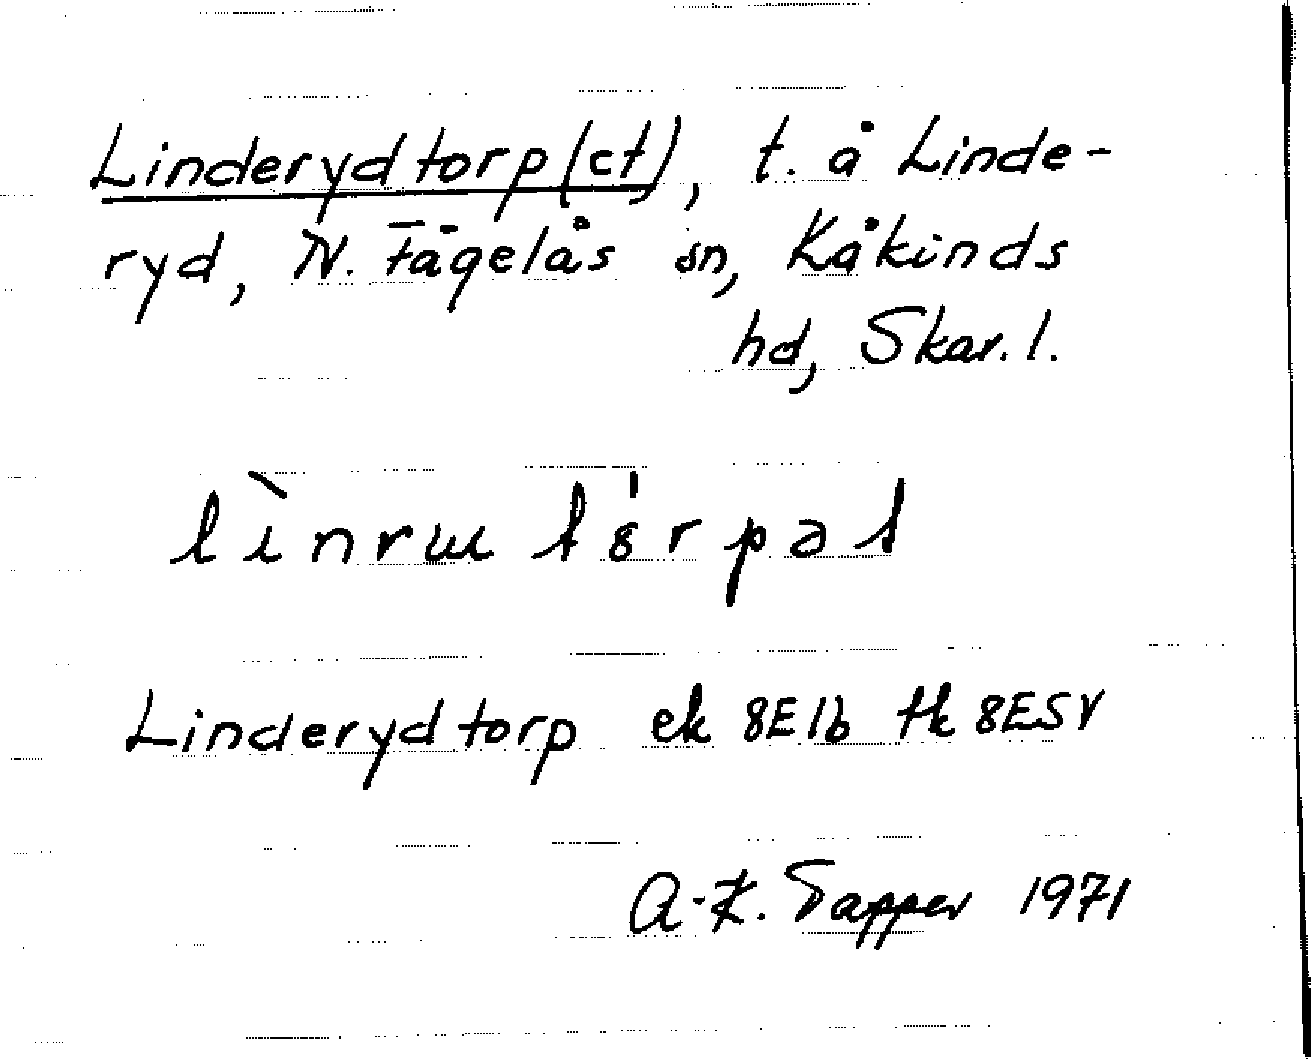 Linderydtorp(et), t. å Linde-
ryd, N. Fågelås sn, Kåkinds
hd, Skar. l.
Linderydtorp ek 8E1b tk 8ESV
A-K. Tapper 1971